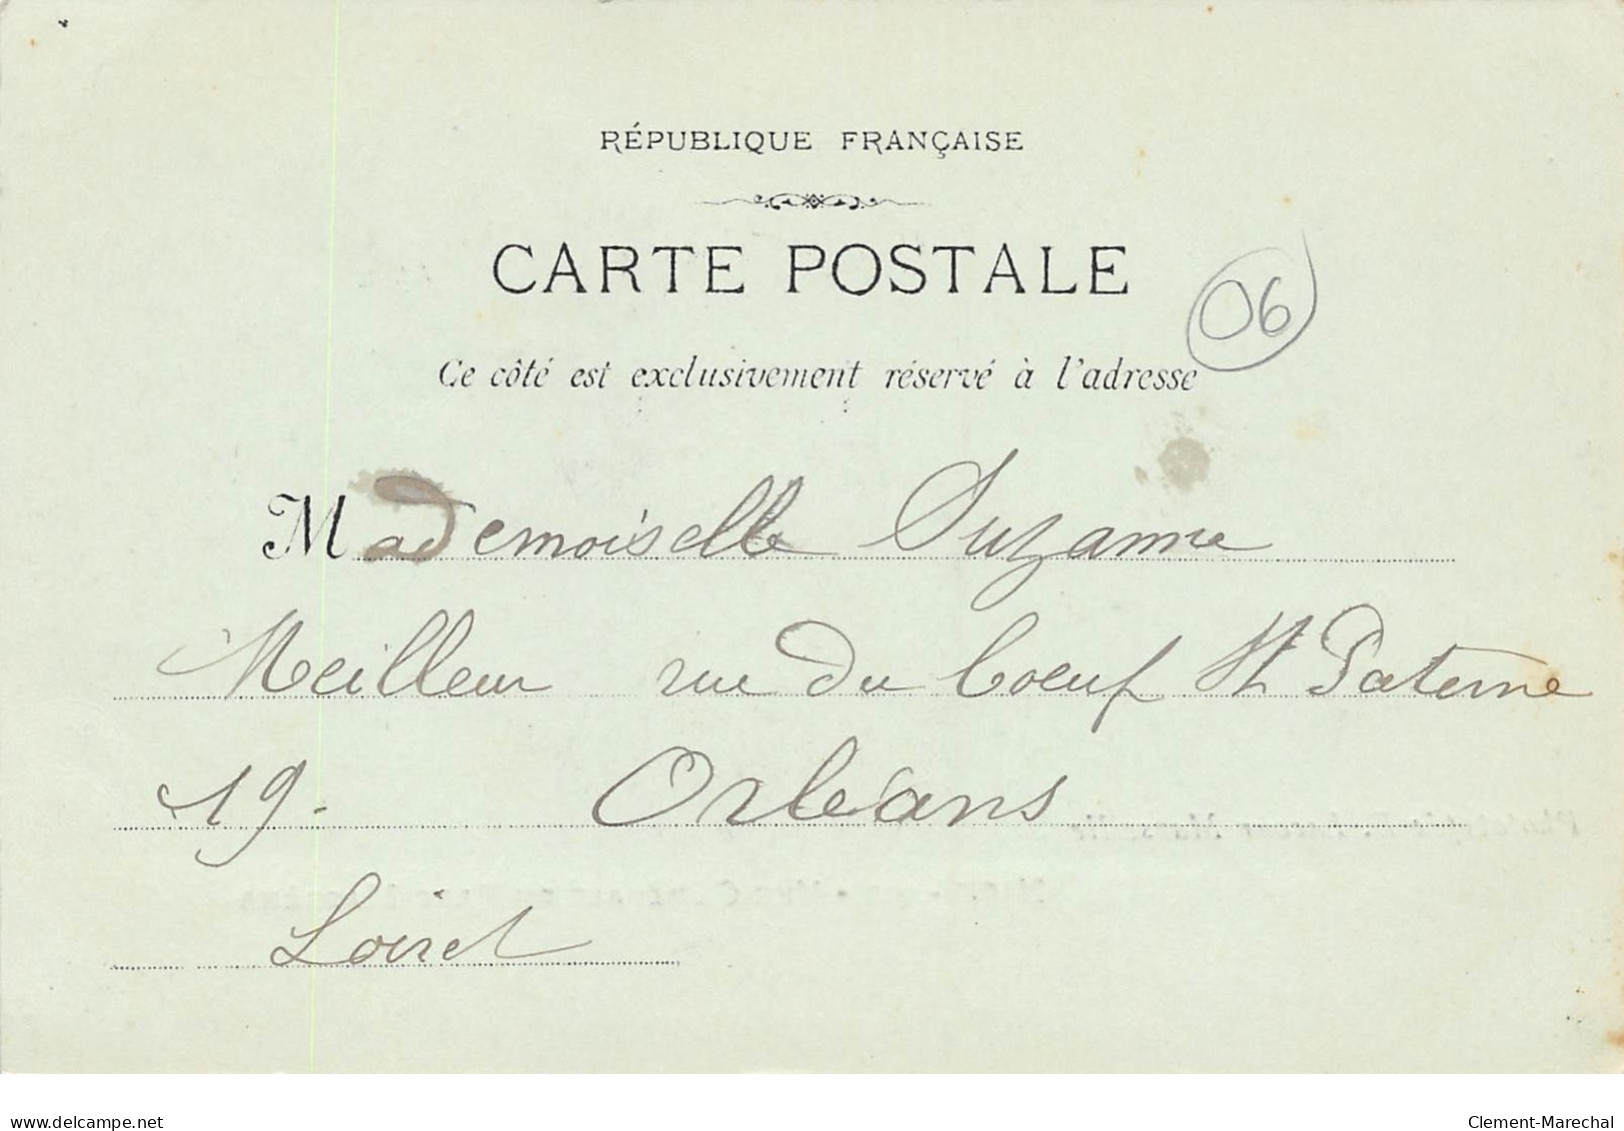 RÉPUBLIQUE FRANÇAISE
CARTE POSTALE
06
Ce côté est exclusivement réservé à l'adresse
Mademoiselle Suzanne
Meilleur rue du boeuf St Paterne
19. Orléans
Loiret
www.delcampe.net
Clement-Marechal